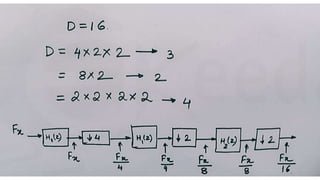 D=16.
D = 4×2×2 → 3
= 8×2 → 2
= 2×2×2×2 → 4
Fx → H₁(z) ↓4 H₁(z) ↓2 H₂(z) ↓2
Fx Fx/4 Fx/4 Fx/8 Fx/8 Fx/16